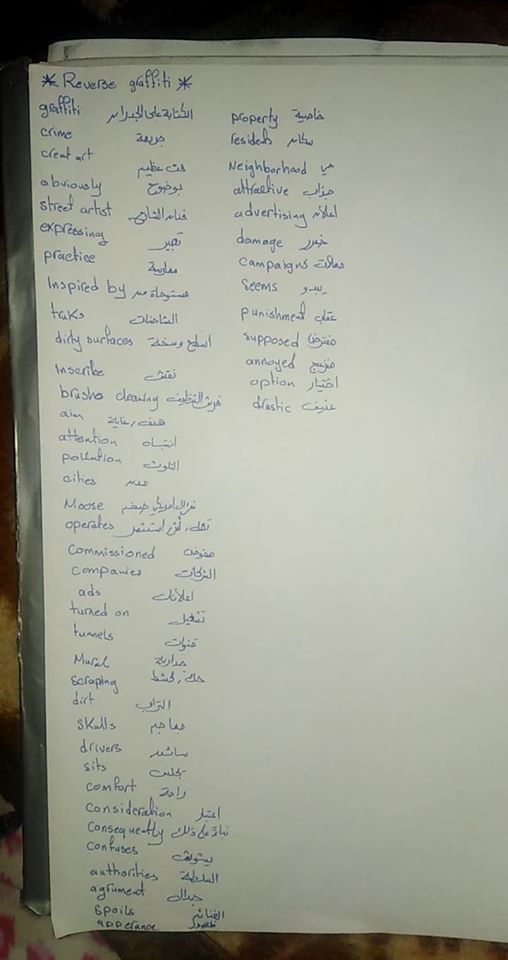 * Reverse graffiti *
graffiti الكتابة على الجدران
crime جريمة
creat art فن عظيم
obviously بوضوح
street artist فنان الشارع
expressing تعبير
practice ممارسة
Inspired by مستوحاة من
truks الشاحنات
dirty surfaces اسطح وسخة
Inscribe نقش
brushs cleaning فرش التنظيف
aim هدف, غاية
attention انتباه
pollution التلوث
cities مدن
Moose غزال امريكي ضخم
operates استثمر
commissioned مفوض
companies الشركات
ads اعلانات
turned on تشغيل
tunnels قنوات
Mural جدارية
scraping حك, كشط
dirt التراب
skulls جماجم
drivers سائقين
sits تجلس
comfort راحة
consideration اعتبار
consequently بناء على ذلك
confuses
authorities السلطة
agrument جدال
spoils الغنائم
apperance ظهور
property خاصية
residents سكان
Neighborhood حي
attractive جذاب
advertising اعلان
damage ضرر
campaigns حملات
seems يبدو
punishment عقاب
supposed مفترض
annoyed منزعج
option اختيار
drastic عنيف